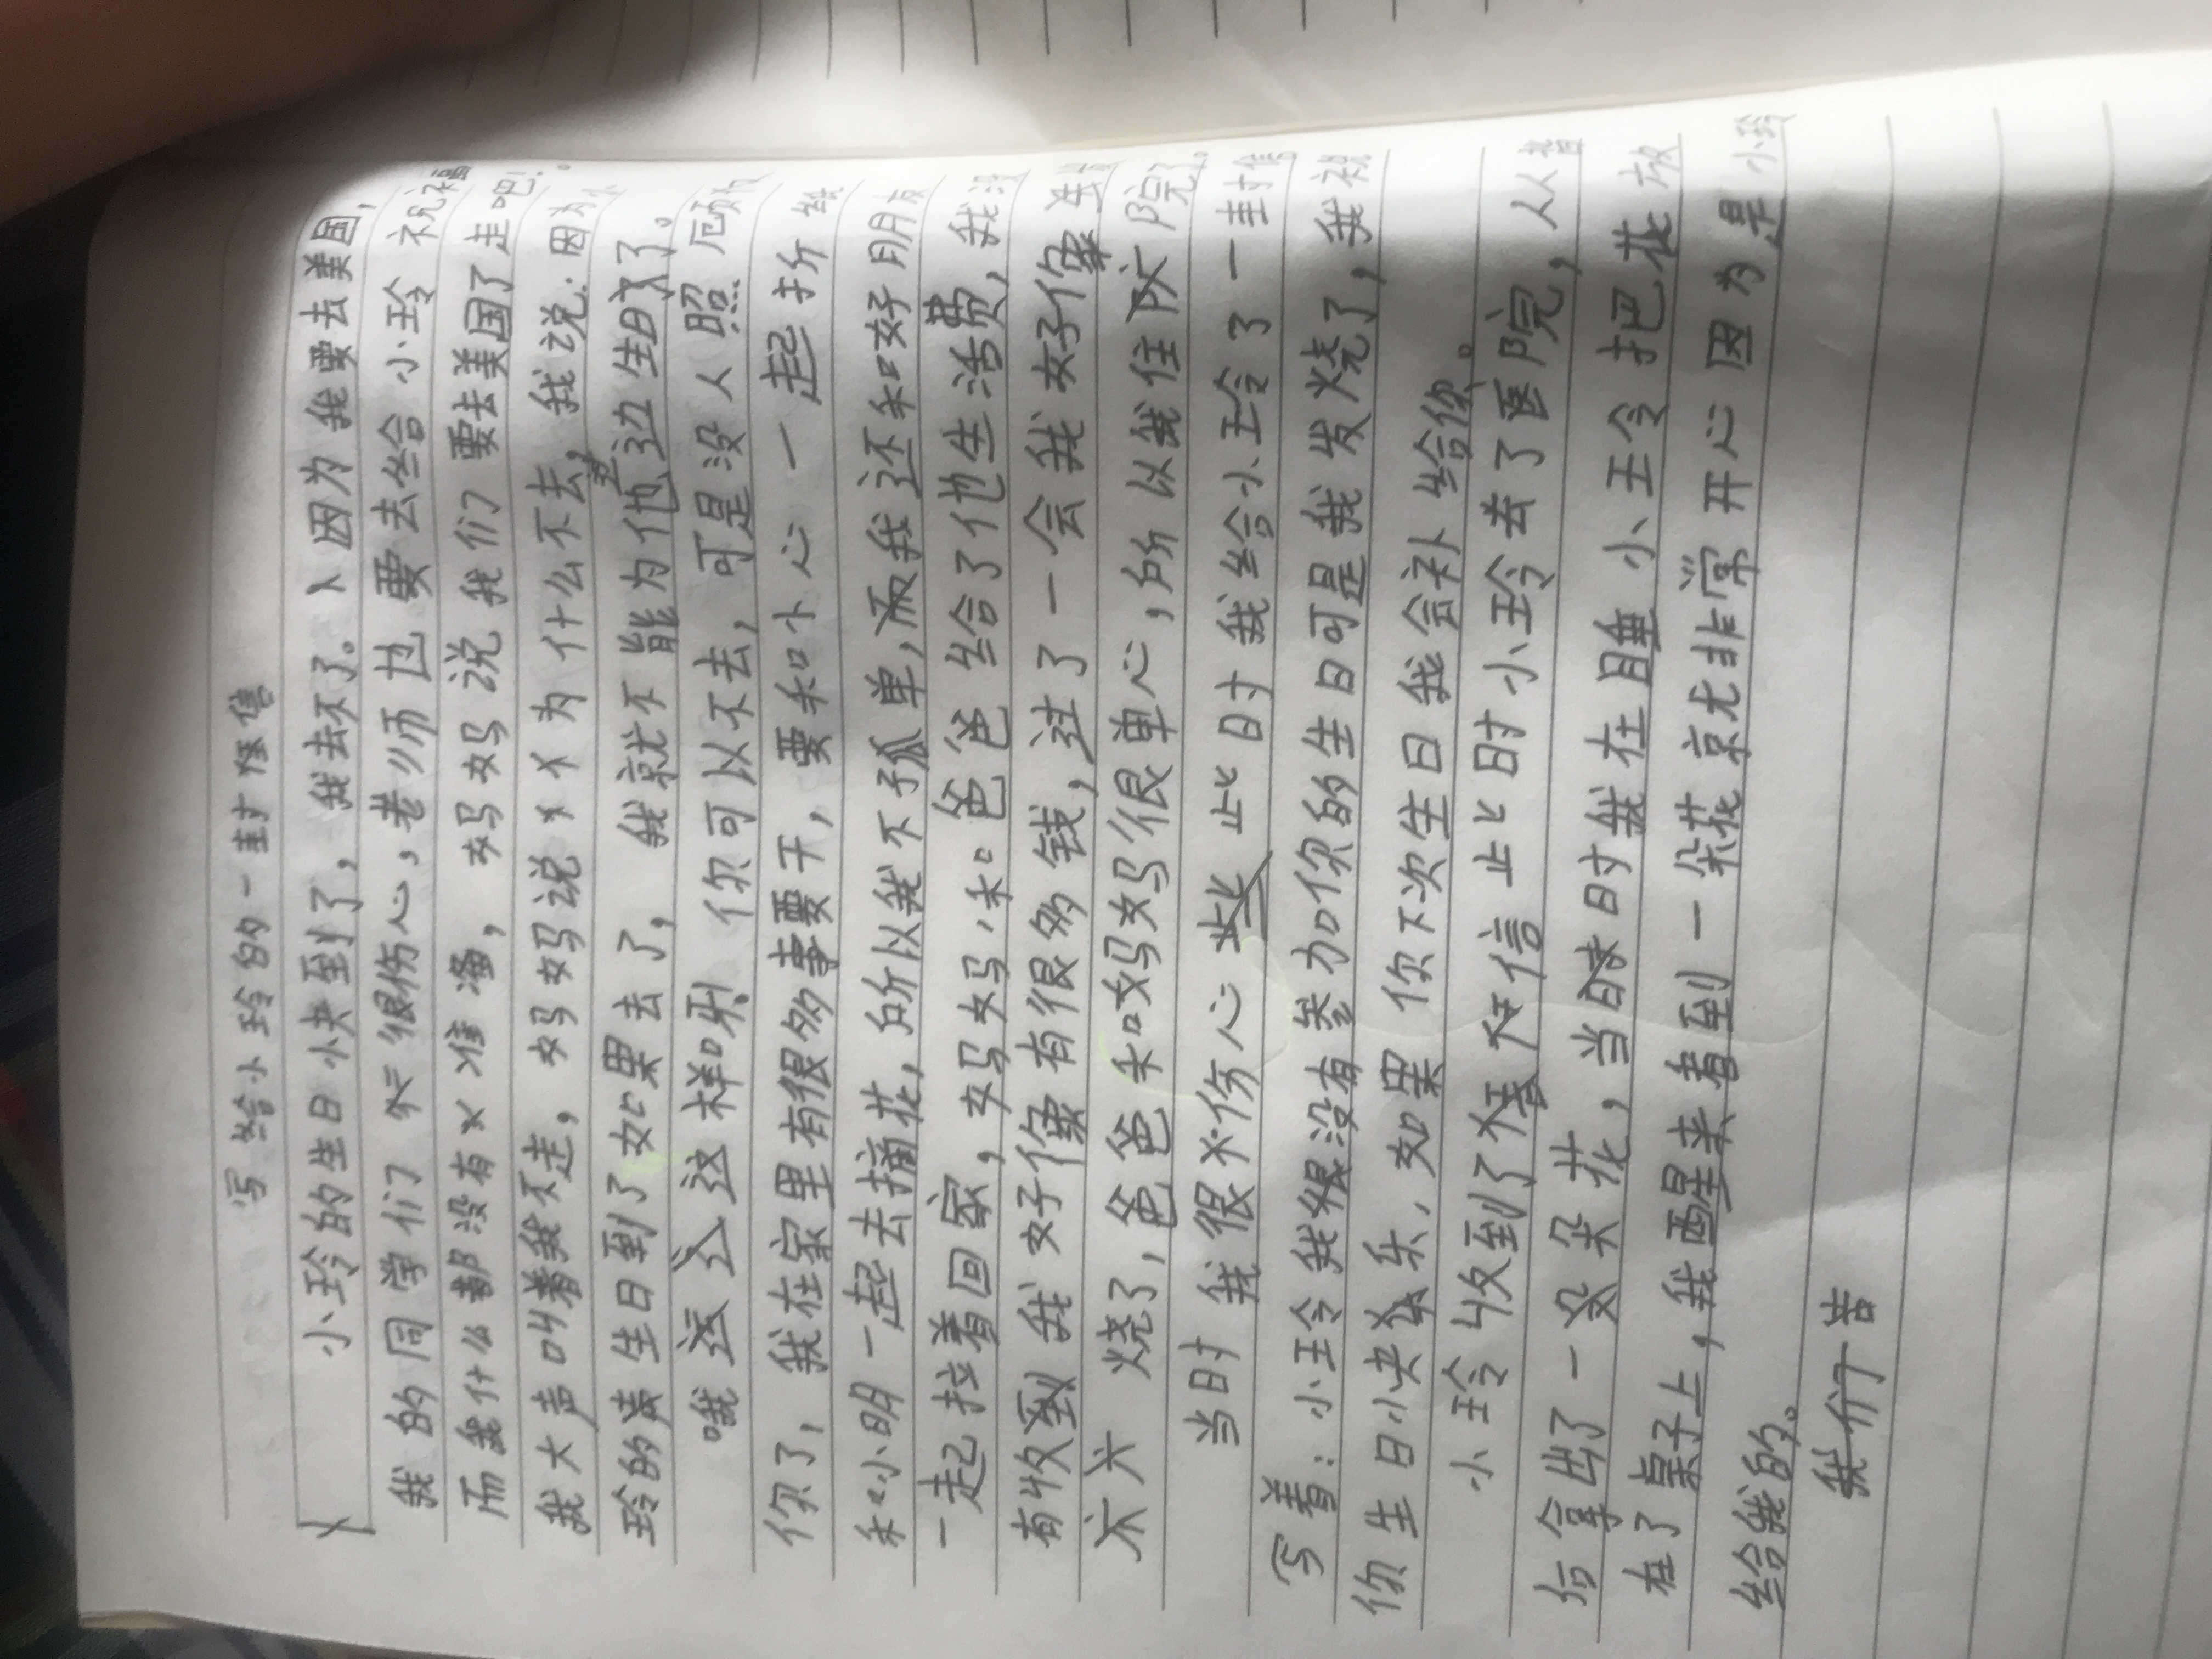 写给小玲的一封信
小玲的生日快到了，我去不了。因为我要去美国，
我的同学们很伤心，老师也要去给小玲祝福
而我什么都没有准备，妈妈说我们要去美国了走吧！
我大声叫着我不走，妈妈说为什么不去，我说：因为小
玲的生日到了如果去了，我就不能为他过生日了。
哦这样呀！你可以不去，可是没人照顾
你了，我在家里有很多事要干，要和小心一起折
和小明一起去摘花，所以我不孤单，而我还和好朋友
一起拉着回家，妈妈和爸爸给了他生活费，我没
有收到我好像有很多钱，过了一会我好像生
烧了，爸爸和妈妈很单心，所以我住院了。
当时我很伤心此时我给小玲了一封信
写着：小玲我没有参加你的生日可是我发烧了，我祝
你生日快乐，如果你下次生日我会补给你。
小玲收到了信此时小玲去了医院，从
拿出了一朵花，当时我在睡小玲把花放
在了桌子上，我醒来看到一朵花就非常开心因为是小玲
给我的。
我们